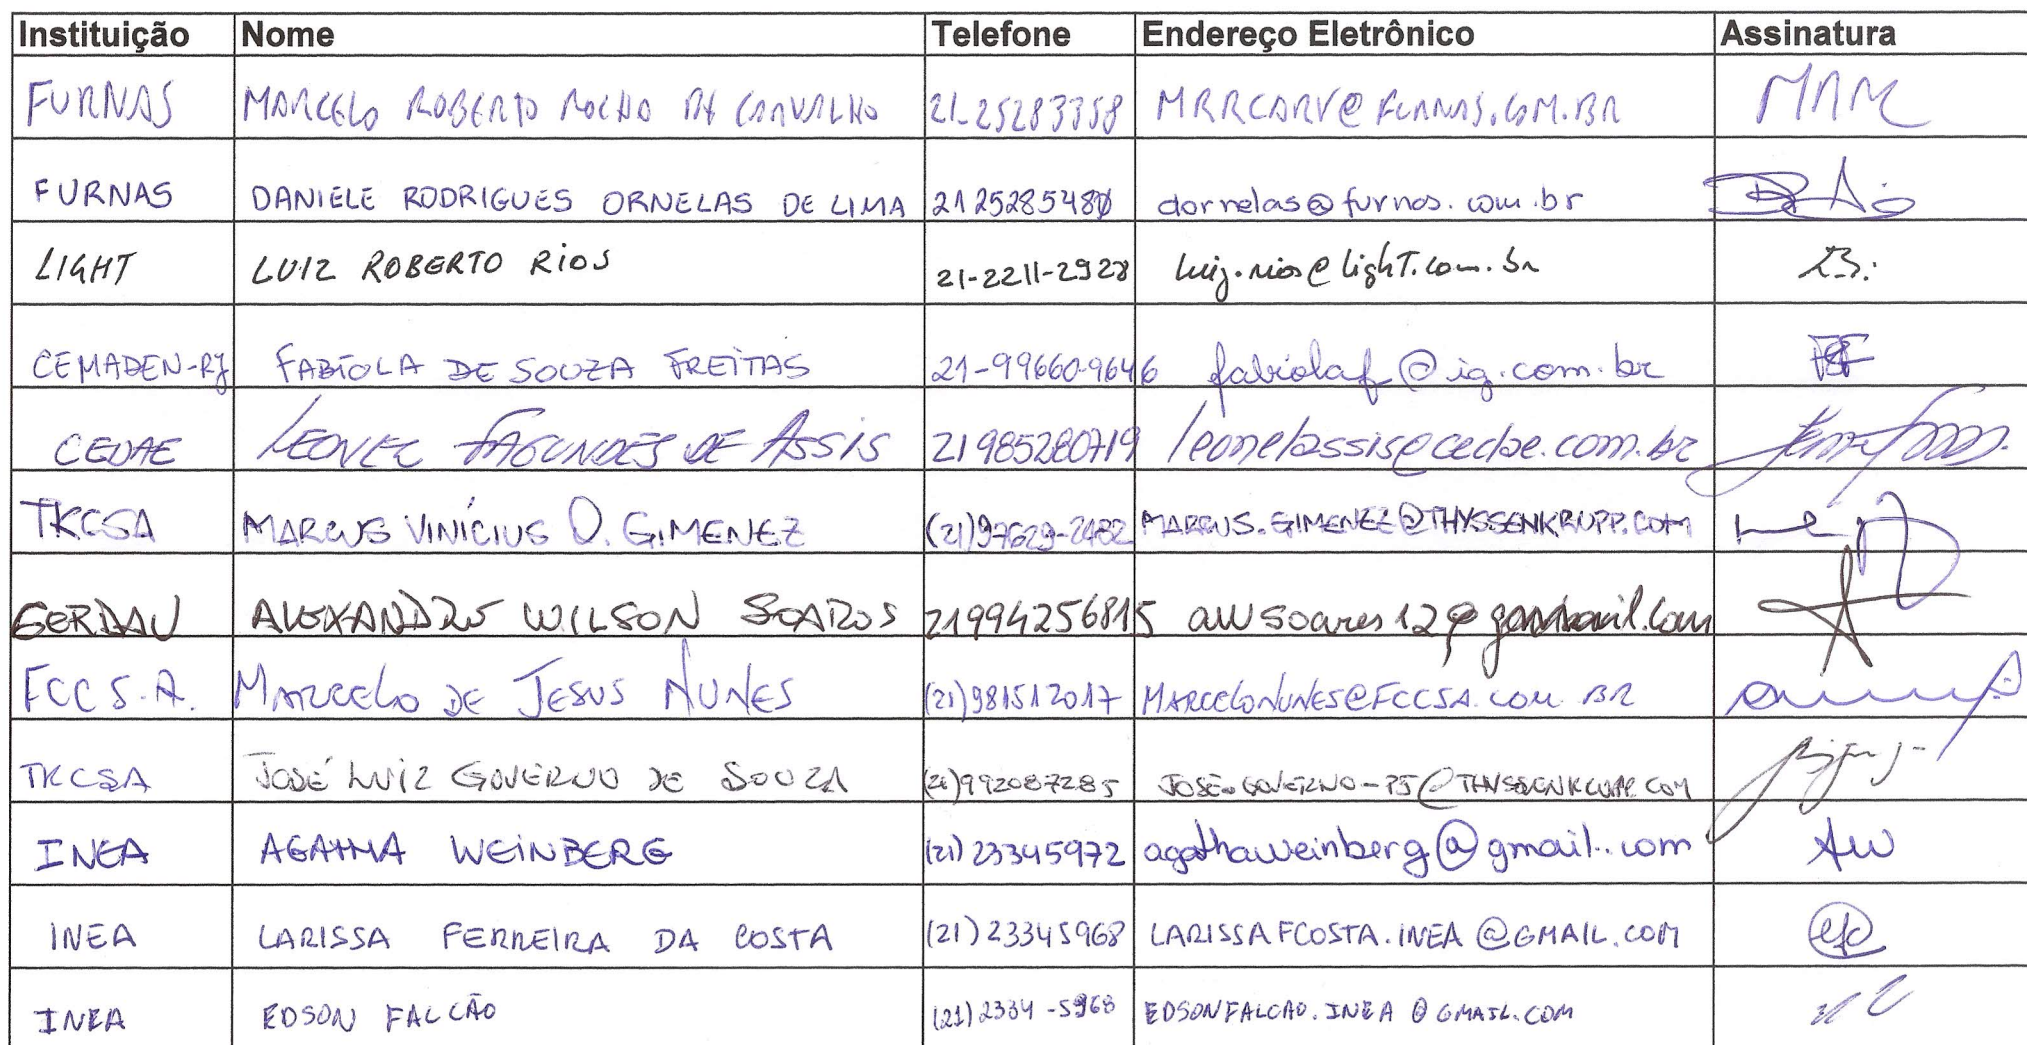 Instituição Nome Telefone Endereço Eletrônico Assinatura
FURNAS MARCELO ROBERTO ROCHA DE CARVALHO 21-25283358 MRRCARV@FURNAS.COM.BR
FURNAS DANIELE RODRIGUES ORNELAS DE LIMA dornelas@furnas.com.br
LIGHT LUIZ ROBERTO RIOS 21-2211-2928 luiz.rios@light.com.br
CEMADEN-RJ FABÍOLA DE SOUZA FREITAS 21-99660-9646 fabiolaf@ig.com.br
CEDAE LEONEL FAGUNDES DE ASSIS 21985280719 leonelassis@cedae.com.br
TKCSA MARCUS VINÍCIUS O. GIMENEZ (21)97629-2482 MARCUS.GIMENEZ@THYSSENKRUPP.COM
GERDAU ALEXANDRE WILSON SOARES 21994256815
FCC S.A. MARCELO DE JESUS NUNES (21)981512017 MARCELONUNES@FCCSA.COM.BR
TKCSA JOSÉ LUIZ GOVERNO DE SOUZA (21)992087285 JOSE.GOVERNO-PJ@THYSSENKRUPP.COM
INEA AGATHA WEINBERG (21) 23345972 agathaweinberg@gmail.com AW
INEA LARISSA FERREIRA DA COSTA (21) 23345968 LARISSAFCOSTA.INEA@GMAIL.COM
INEA EDSON FALCÃO (21) 2334-5968 EDSONFALCAO.INEA@GMAIL.COM